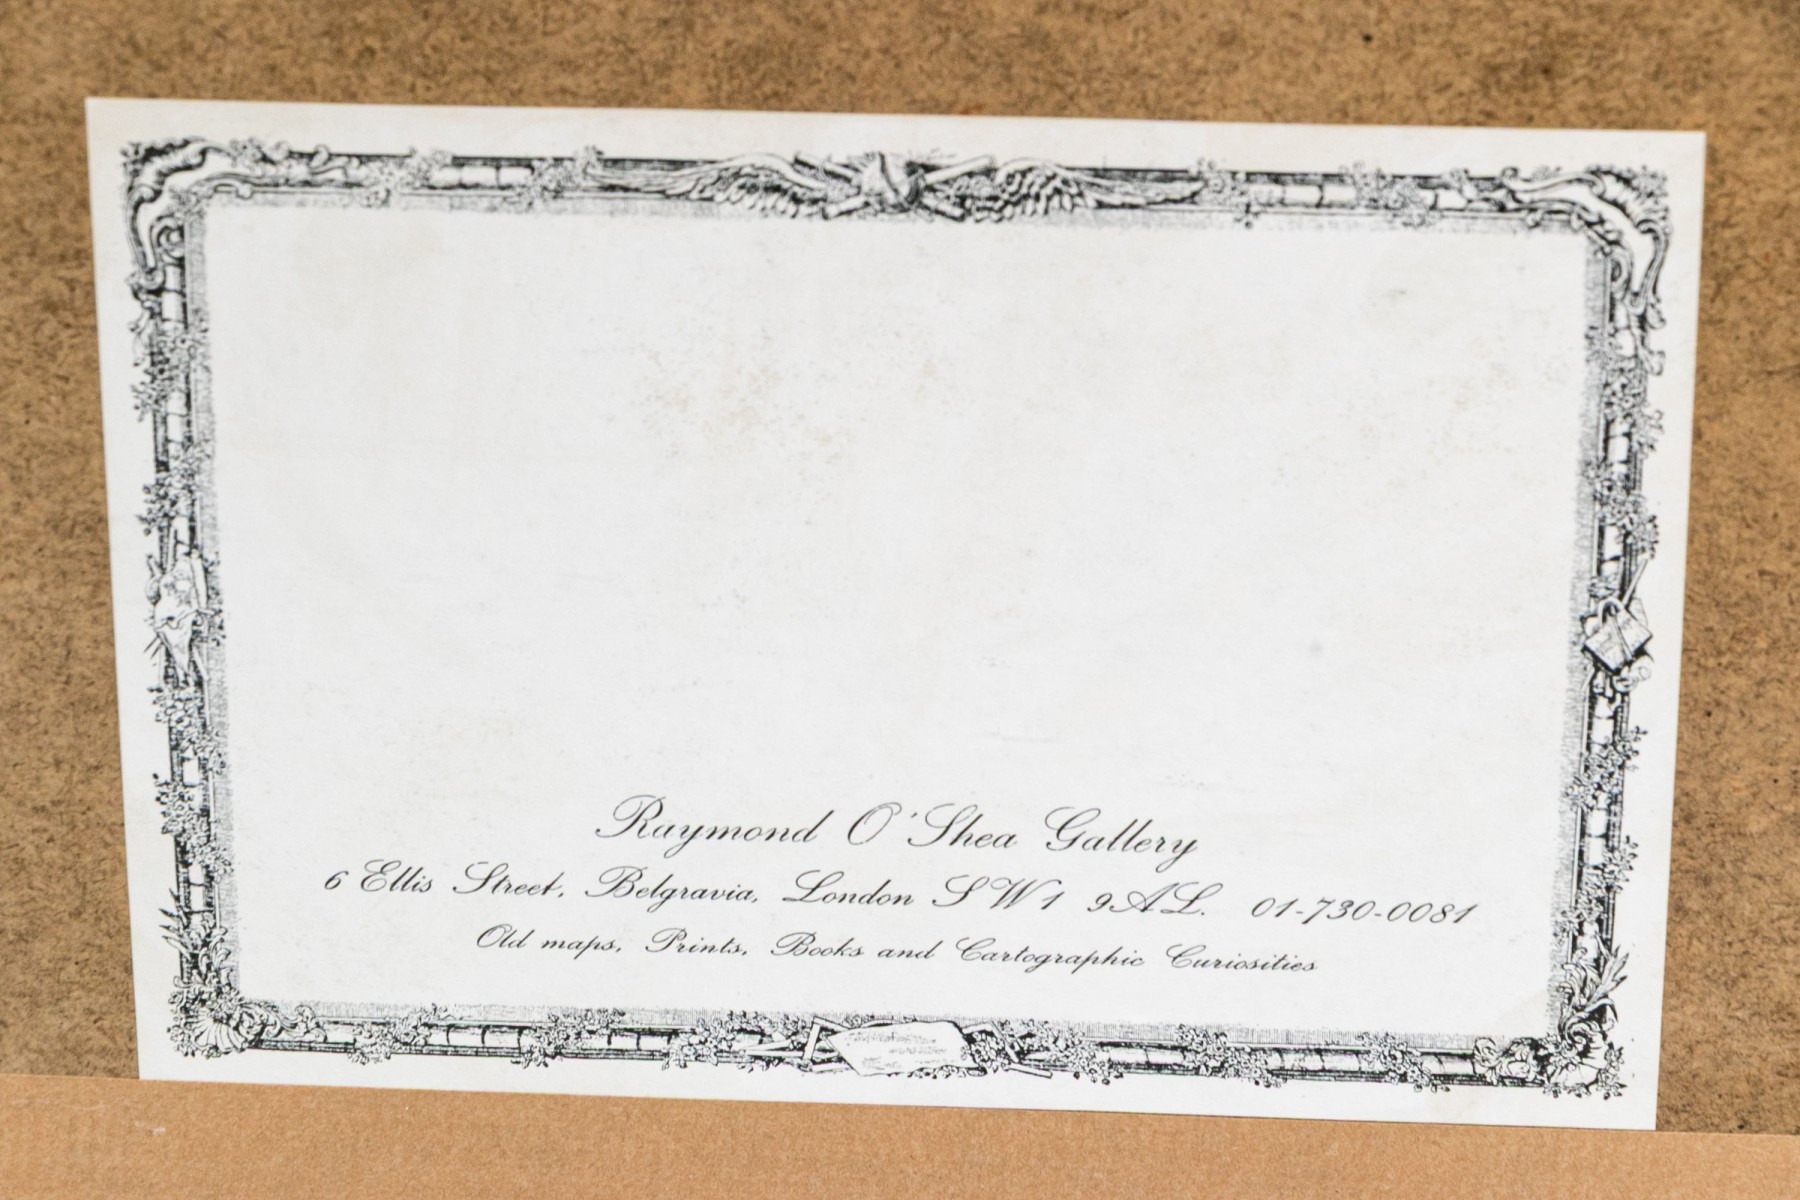 Raymond O'Shea Gallery
6 Ellis Street, Belgravia, London SW1 9AL. 01-730-0081
Old maps, Prints, Books and Cartographic Curiosities